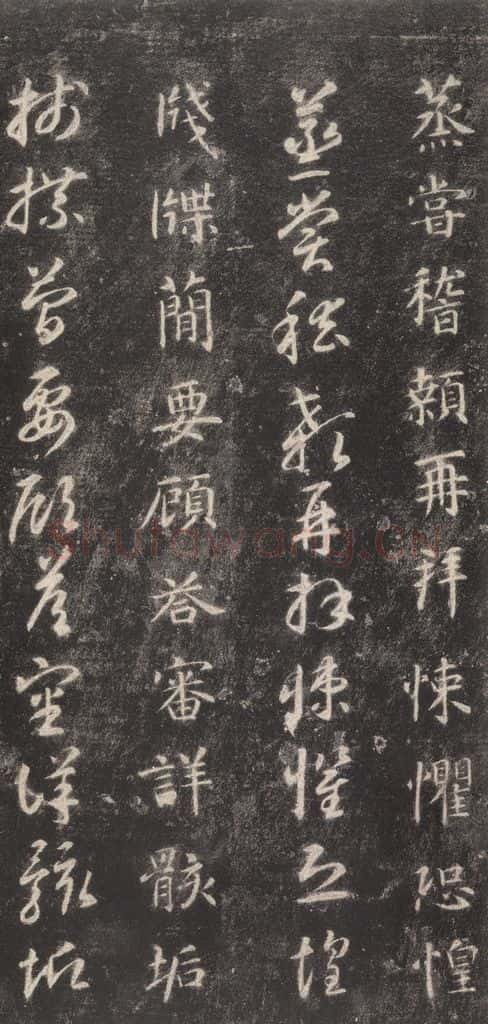 蒸嘗稽顙再拜悚懼恐惶
蒸嘗稽顙再拜悚懼恐惶
牋牒簡要顧答審詳骸垢
牋牒簡要顧答審詳骸垢
Shufawang.CN